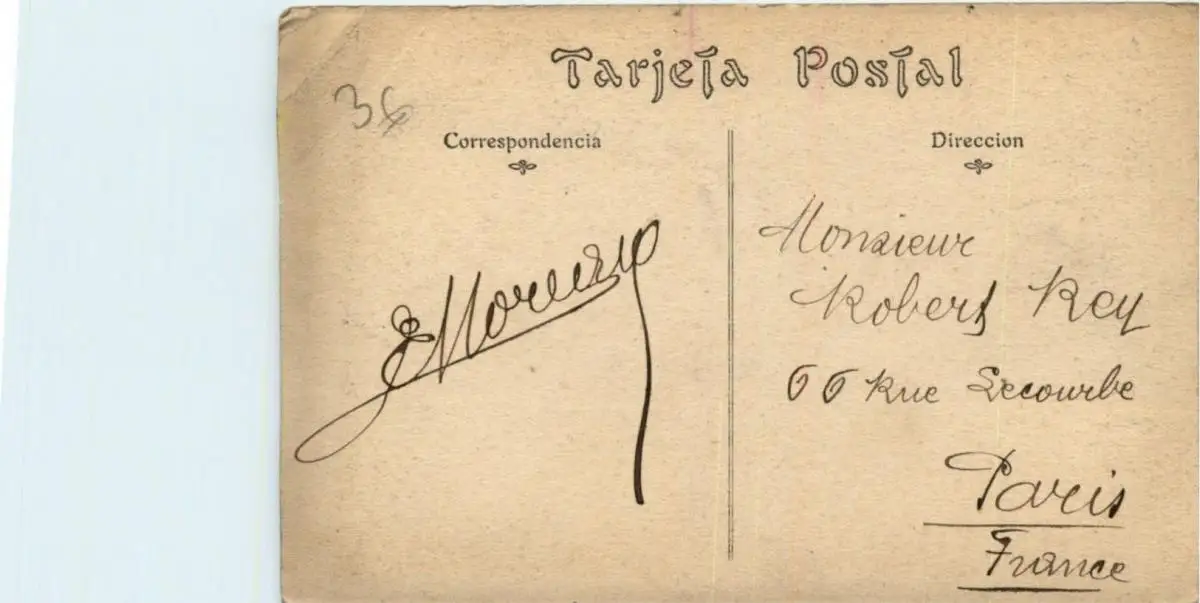 Tarjeta Postal
36
Correspondencia
E Moreno
Direccion
Monsieur
Robert Rey
66 Rue Lecourbe
Paris
France